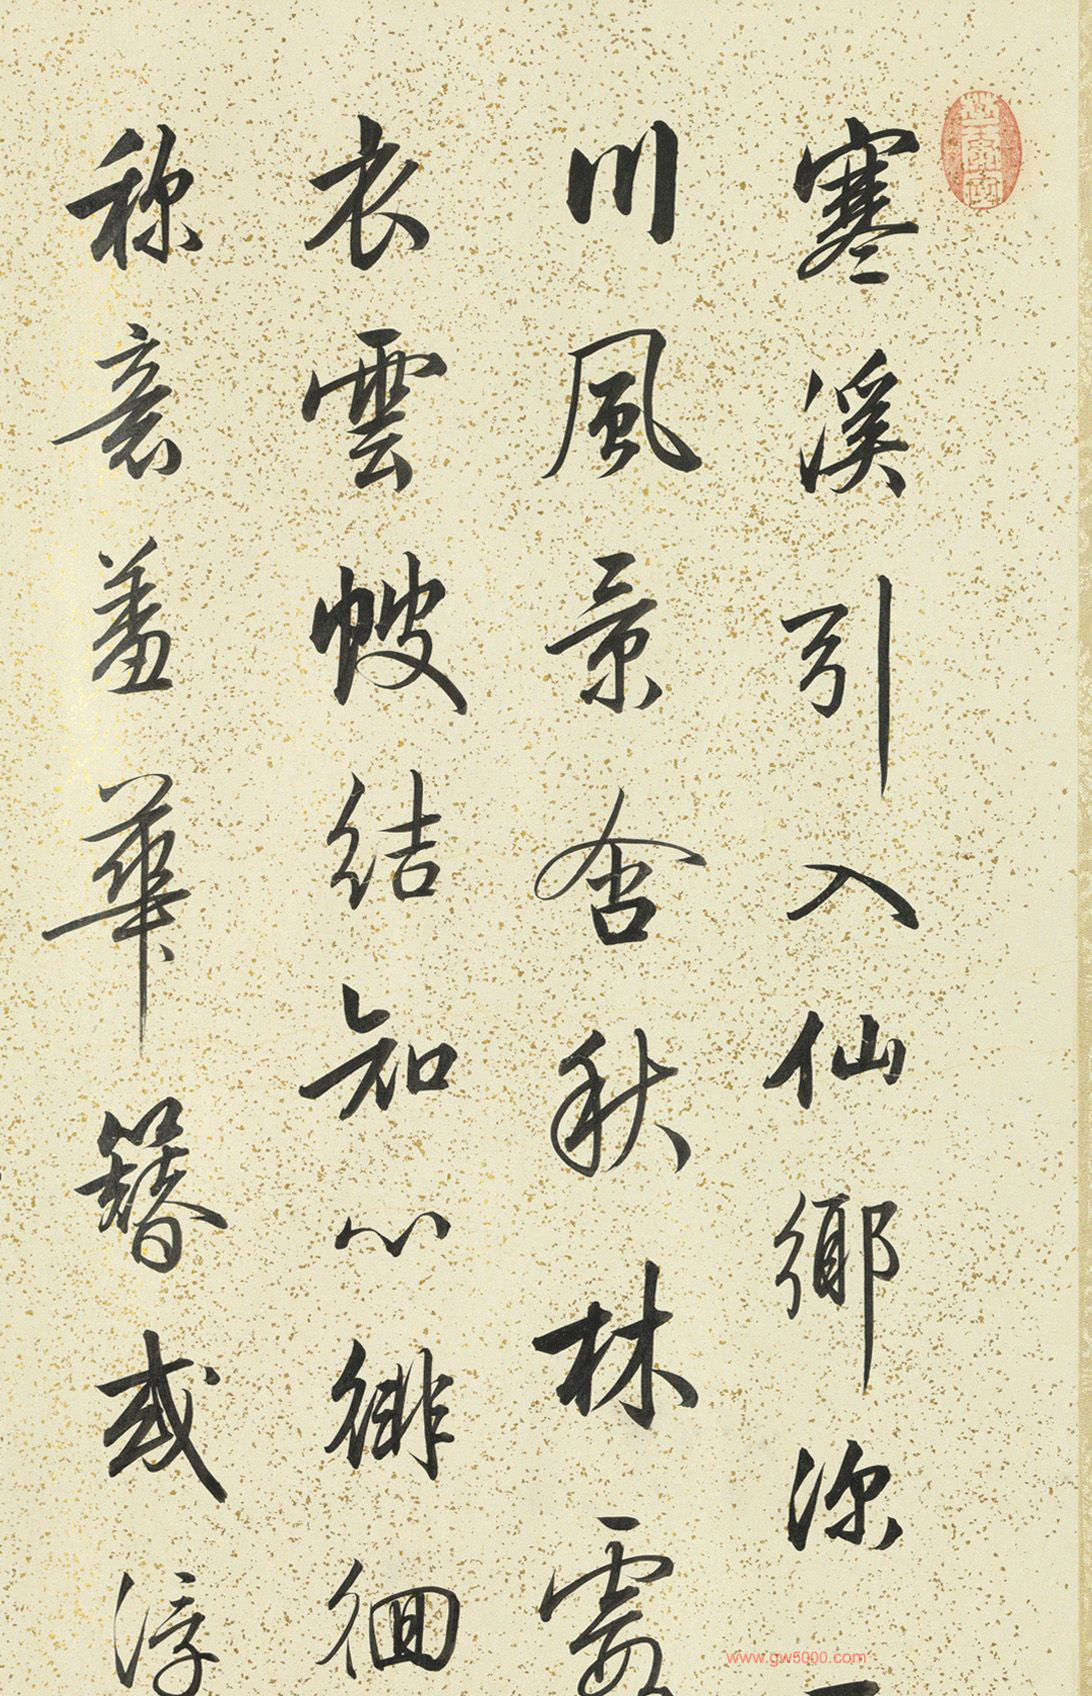 寒溪引入仙鄉深
川風景含秋林
衣雲帔結知心徘徊
称意羞華簪或
www.gw5000.com